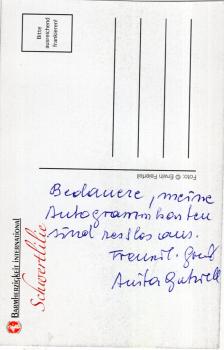 Bitte
ausreichend
frankieren!
Foto: © Erwin Feiertal
Bedauere, meine
Autogrammkarten
sind restlos aus.
Freundl. Gruß
Anita Gutwell
BARMHERZIGKEIT INTERNATIONAL
Schwertlilie